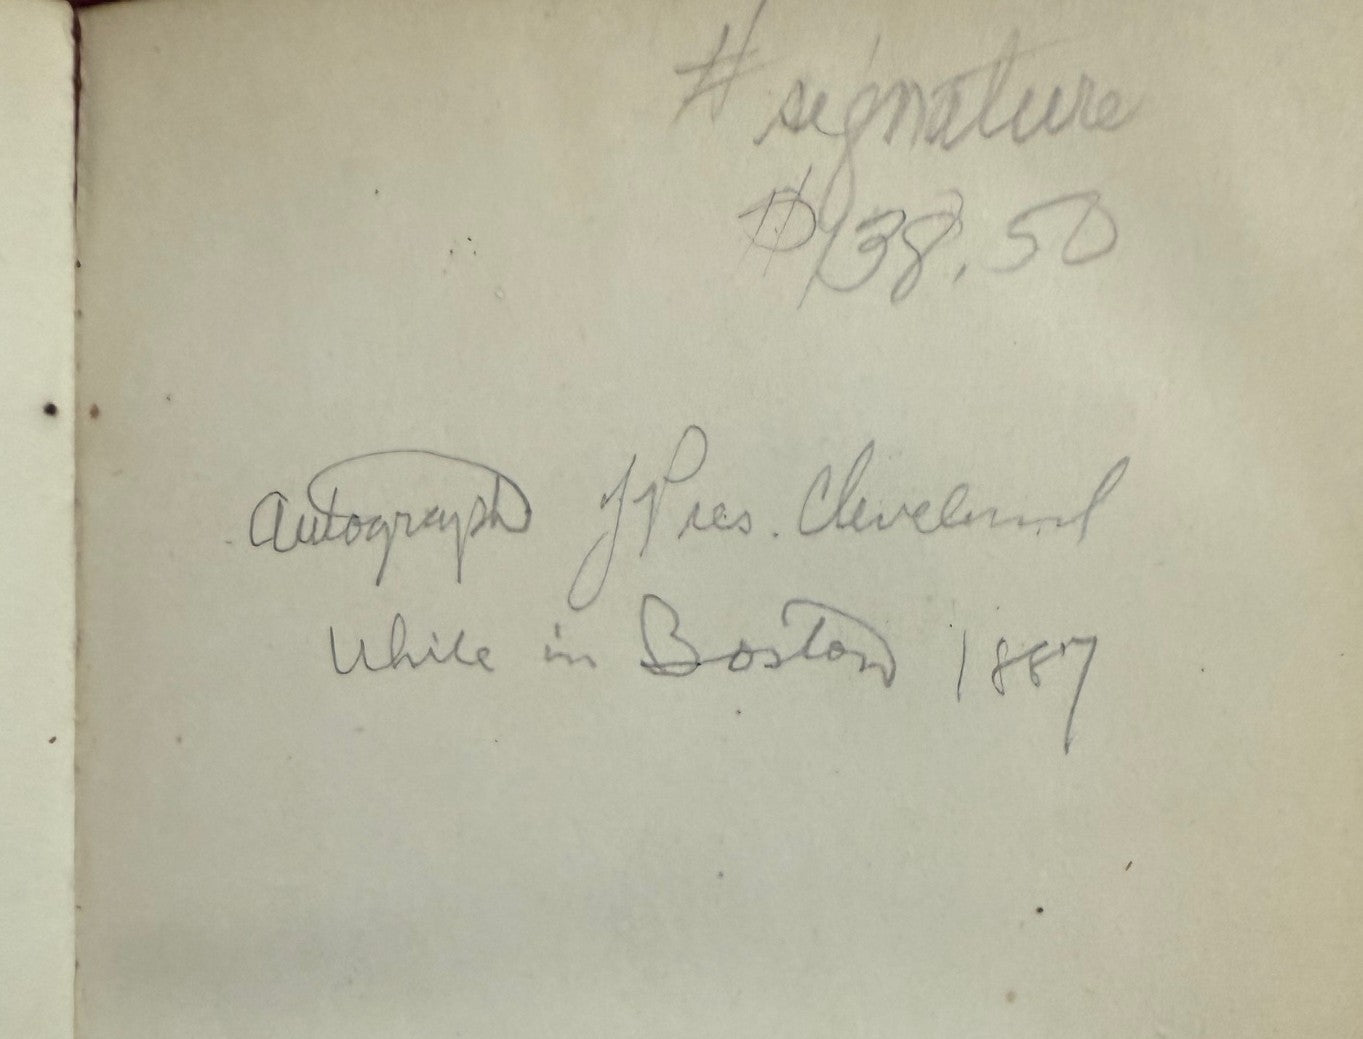 # signature
$138.50
Autograph of Pres. Cleveland
While in Boston 1887